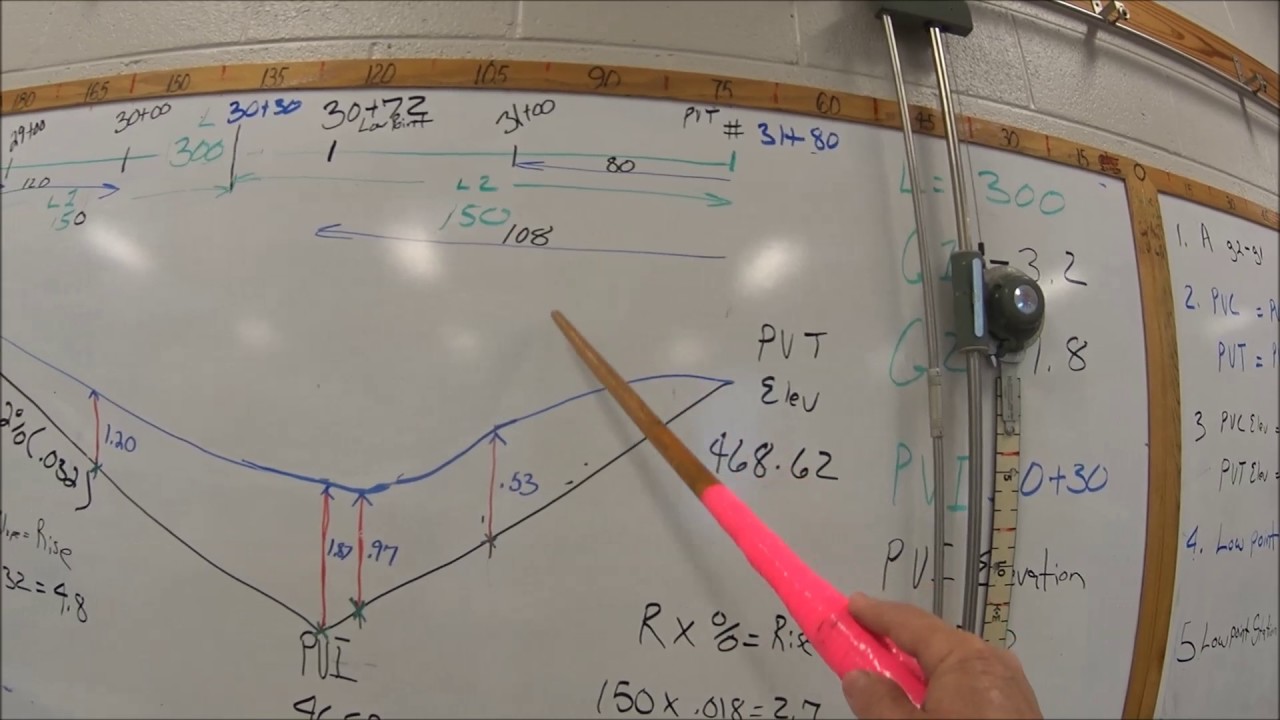 180 165 150 135 120 105 90 75 60 45 30 15 0
29+00 30+00 L 30+30 30+72 31+00 PVT # 31+80
Low Point
300
120 80
L2
150 150
108
L = 300
-3.2
1.8
PVT
Elev
468.62
2% (.032)
1.20
.53
1.87 .97
Rise
32 = 4.8
PVI 0+30
PVI
R x % = Rise
150 x .018 = 2.7
1. A g2-g1
2. PVC =
PVT =
3 PVC Elev =
PVT Elev =
4. Low point
5 Low point Station